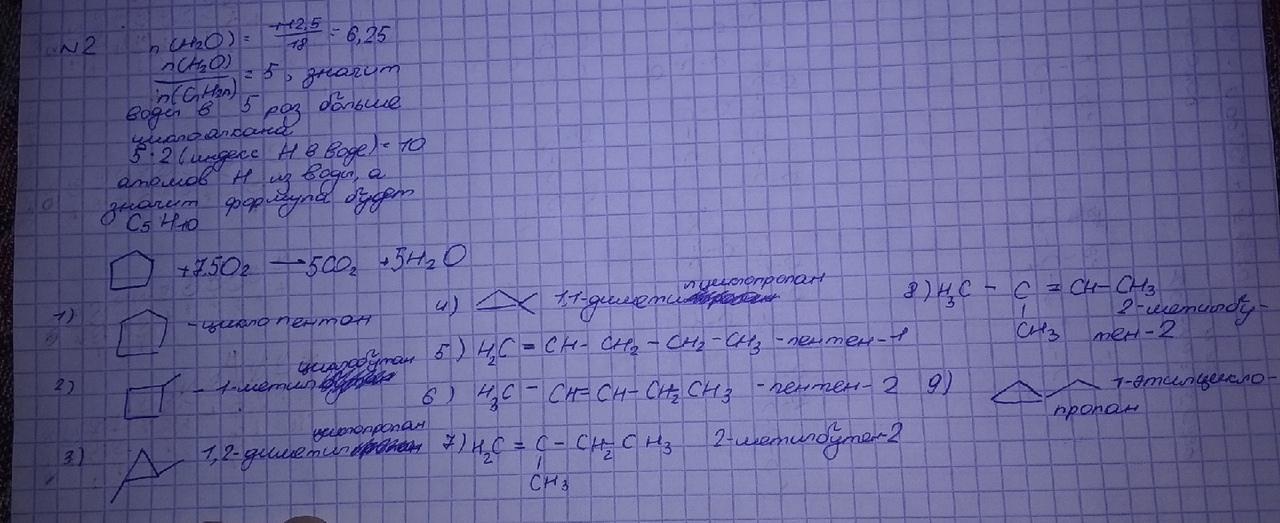 N2 n(H2O) = 112,5/18 = 6,25
n(H2O)/n(CnH2n) = 5, значит
воды в 5 раз больше
циклоалкана
5·2 (индекс H в воде) = 10
атомов H из воды, а
значит формула будет
C5H10
+7,5O2 → 5CO2 + 5H2O
1) - циклопентан
2) - 1-метилциклобутан
3) 1,2-диметилциклопропан
4) 1,1-диметилциклопропан
5) H2C = CH - CH2 - CH2 - CH3 - пентен-1
6) H3C - CH = CH - CH2 - CH3 - пентен-2
7) H2C = C - CH2 - CH3 2-метилбутен-2
CH3
8) H3C - C = CH - CH3
CH3
2-метилбу-
тен-2
9) 1-этилцикло-
пропан